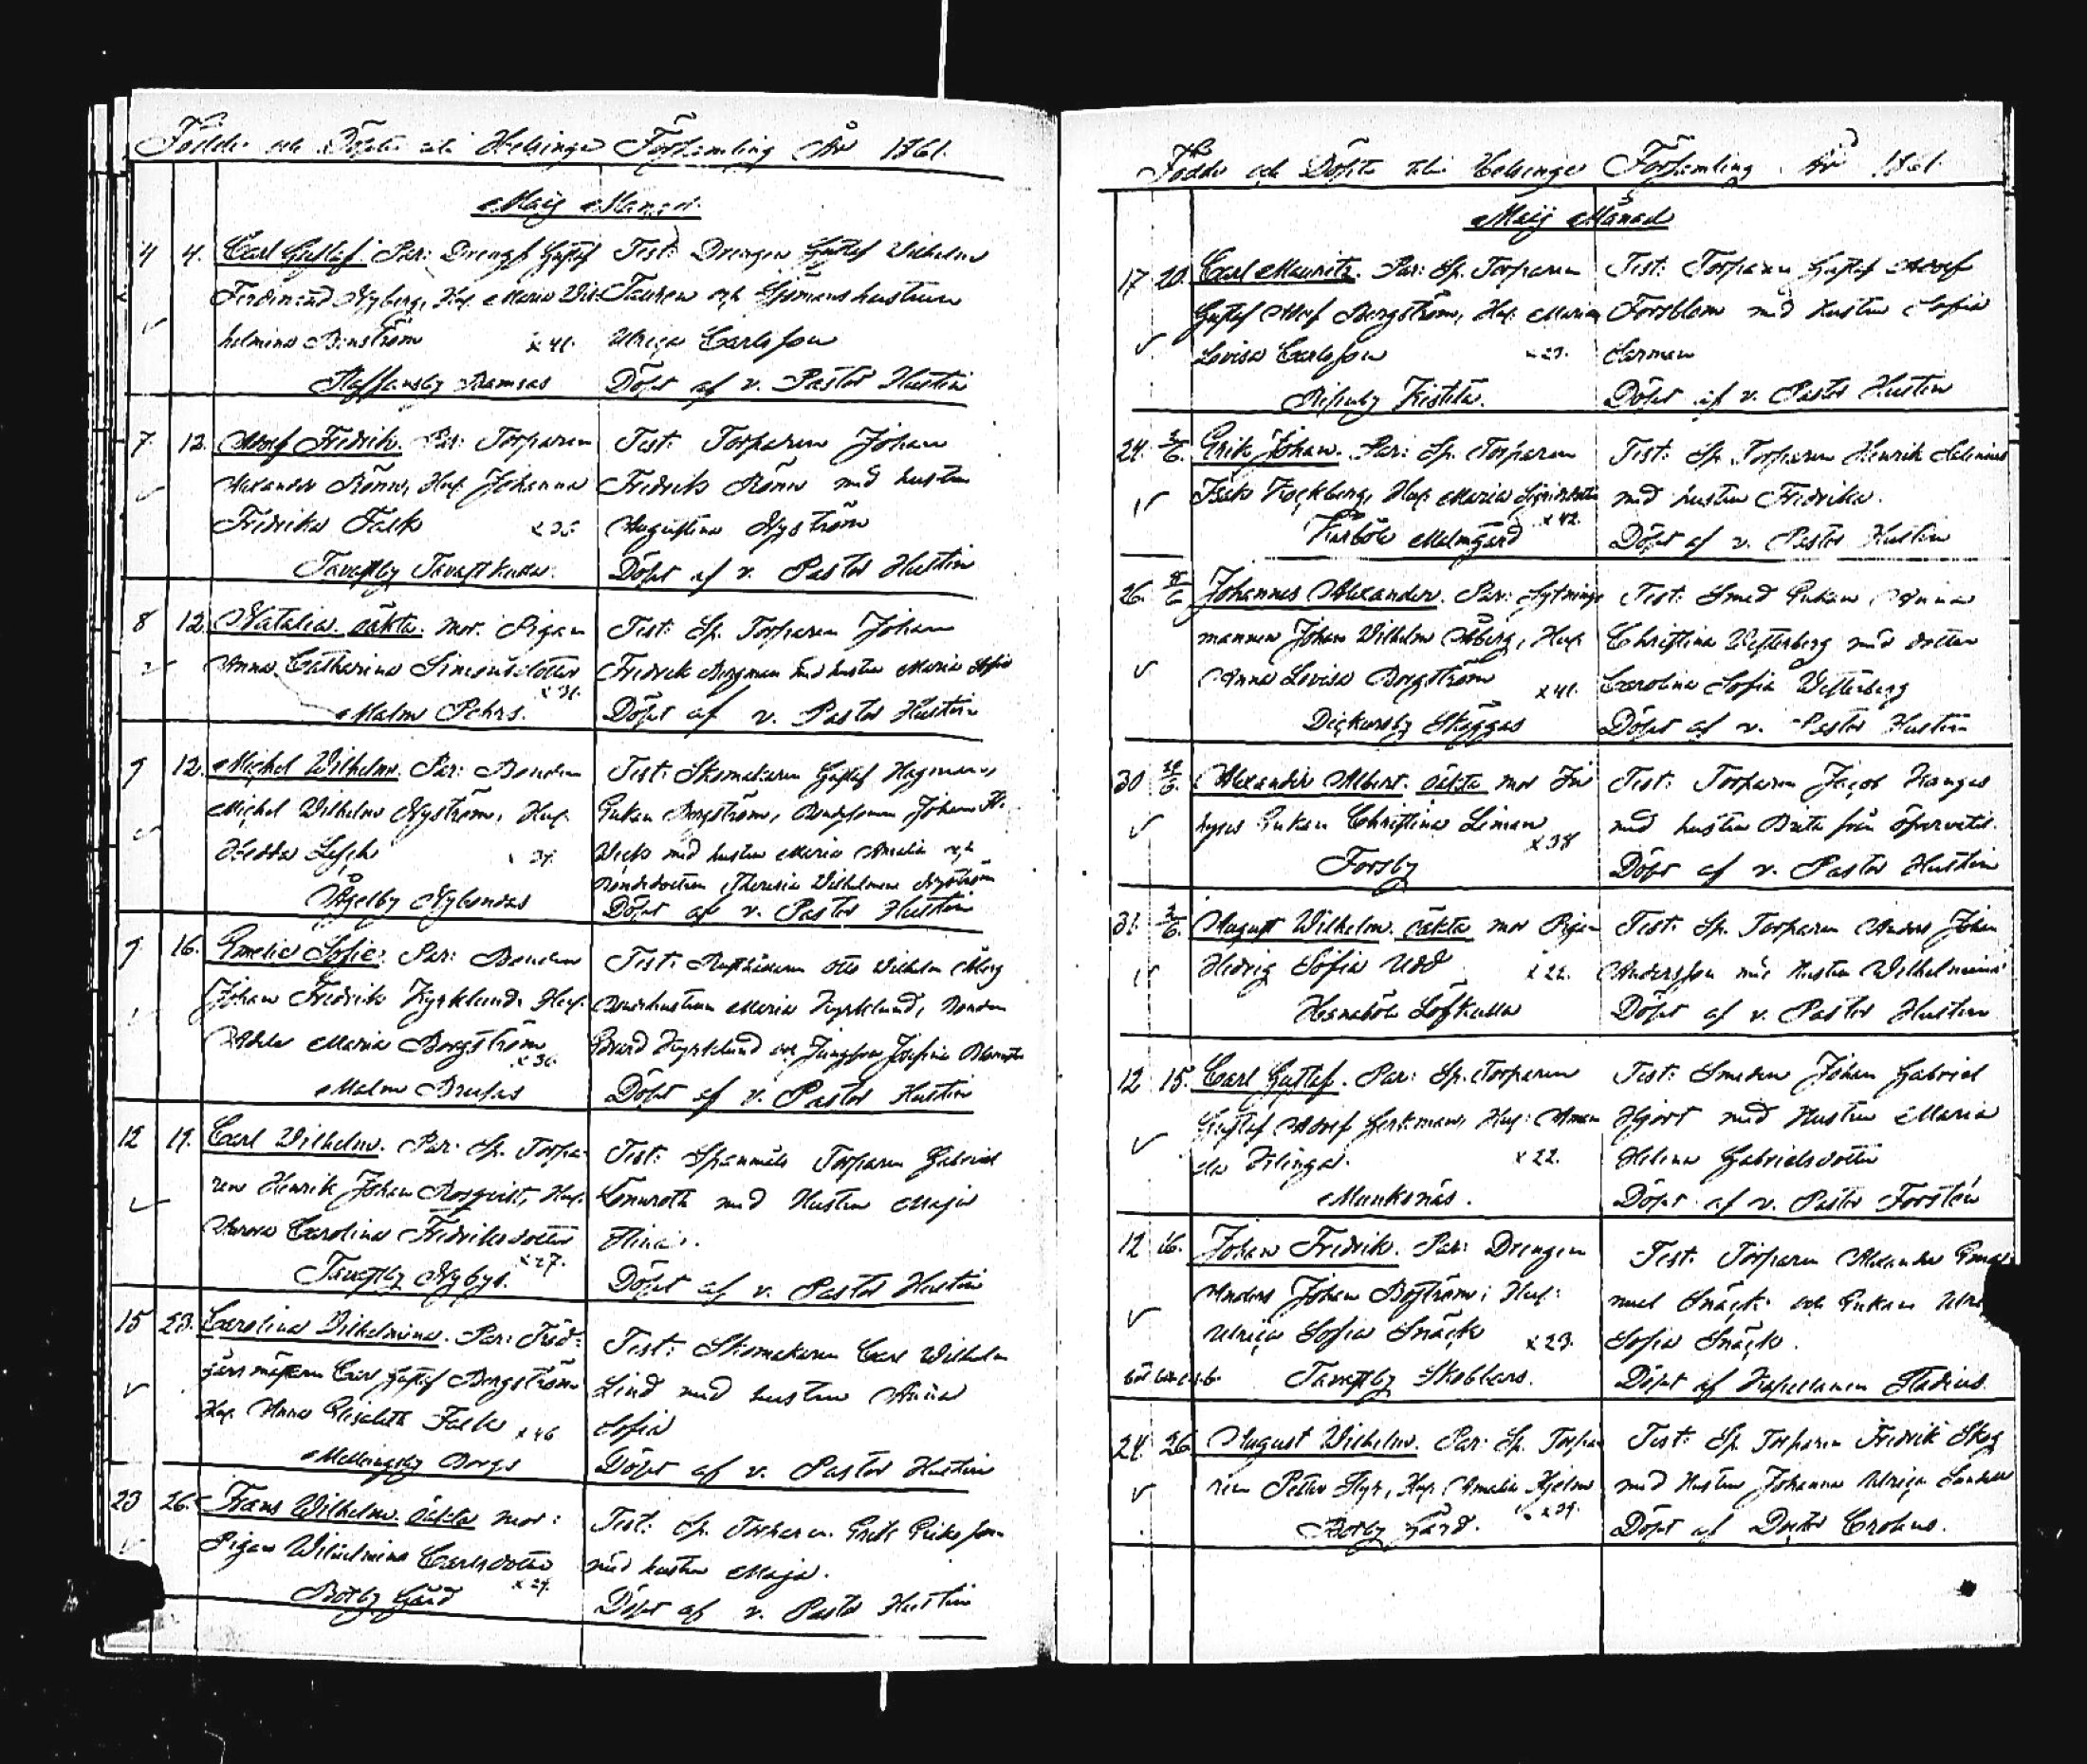 Födde och Döpte uti Helsinge Församling År 1861.
Maij Månad.
4 4. Carl Gustaf. Par: Drengs Gustaf
Ferdinand Nyberg, Hus. Maria Wil-
helmina Renström x 41.
Staffansby Ramsas
Test: Drengen Gustaf Wilhelm
och Sjömans hustrun
Ulrica Carlsson
Döpt af v. Pastor Hustin
7 12. Adolf Fredrik. Par: Torparen
Alexander Rönn, Hus. Johanna
Fredrika Falk
Tavastby Tavastkulla.
Test: Torparen Johan
Fredrik Rönn med hustru
Augustina Nyström
Döpt af v. Pastor Hustin
8 12. Natalia. oäkta. Mor: Pigan
Anna Catharina Simonsdotter
x 31.
Malm Pehrs.
Test: Sp. Torparen Johan
Fredrik Bergman med hustru Maria Sofia
Döpt af v. Pastor Hustin
9 12. Michel Wilhelm. Par: Bonden
Michel Wilhelm Nyström, Hus.
Hedda
Åggelby Nybondas
Test: Skomakaren Gustaf Hagman,
Enkan Bergström, Bondesonen Johan
med hustru Maria Amalia och
Bondedottren Theresia Wilhelmina Nyström
Döpt af v. Pastor Hustin
9 16. Emelie Sofie. Par: Bonden
Johan Fredrik Kyrklund, Hus.
Maria Bergström
x 36.
Malm Brusas
Test: Rusthållaren Otto Wilhelm Åberg
Bondehustrun Maria Kyrklund, Bonden
Evard Kyrklund och Jungfrun Josefina
Döpt af v. Pastor Hustin
12 19. Carl Wilhelm. Par: Sp. Torpa-
ren Henrik Johan Rosqvist, Hus.
Carolina Fredriksdotter
x 27.
Tavastby Nybys.
Test: Spanmåls Torparen Gabriel
Lönnroth med Hustru Maja
Stina.
Döpt af v. Pastor Hustin
15 23. Carolina Wilhelmina. Par: Träd-
gårsmästaren Carl Gustaf Bergström
Hus. Anna Elisabeth Falk x 46
Mellungsby Borgs
Test: Skomakaren Carl Wilhelm
Lind med hustru Anna
Sofia
Döpt af v. Pastor Hustin
23 26. Frans Wilhelm. oäkta mor:
Pigan Wilhelmina Carlsdotter
x 29.
Botby Gård
Test: Sp. Torparen Erik Eriksson
med hustru Maja.
Döpt af v. Pastor Hustin
Födde och Döpte uti Helsinge Församling År 1861
Maij Månad
17 20. Carl Mauritz. Par: Sp. Torparen
Gustaf Adolf Bergström, Hus. Maria
Lovisa Carlsson x 23.
Ripuby Kistila.
Test: Torparen Gustaf Adolf
Forsblom med hustru Sofia
Döpt af v. Pastor Hustin
24. 2/6. Erik Johan. Par: Sp. Torparen
Isak Krockberg, Hus. Maria
x 42.
Kårböle Malmgård
Test: Sp. Torparen Henrik Salenius
med hustru Fredrika.
Döpt af v. Pastor Hustin
26. Johannes Alexander. Par: Sytnings-
mannen Johan Wilhelm Åberg, Hus.
Anna Lovisa Bergström x 41.
Dickursby Skäggas
Test: Smed Enkan Anna
Christina Westerberg med dotter
Carolina Sofia Westerberg
Döpt af v. Pastor Hustin
30 Alexander Albert. oäkta mor In-
hyses Enkan Christina Liman
x 38
Forsby
Test: Torparen Jacob
med hustru Brita från Öfvervetil.
Döpt af v. Pastor Hustin
31. 2/6. August Wilhelm. oäkta mor Pigan
Hedvig Sofia Udd x 22.
Hernäböle Löfkulla
Test: Sp. Torparen Anders Johan
Andersson med hustru Wilhelmina
Döpt af v. Pastor Hustin
12 15. Carl Gustaf. Par: Sp. Torparen
Gustaf Adolf Gerkman, Hus: Aman-
da x 22.
Munksnäs.
Test: Smeden Johan Gabriel
Hjort med Hustru Maria
Helena Gabrielsdotter
Döpt af v. Pastor Forstén
12 16. Johan Fredrik. Par: Drengen
Anders Johan Boström, Hus:
Ulrica Sofia Snäck x 23.
Tavastby Skobbars.
Test: Torparen Alexander Ema-
nuel Snäck och Enkan
Sofia Snäck.
Döpt af Kapellanen Stadius.
24. 26. August Wilhelm. Par: Sp. Torpa-
ren Petter Styr, Hus. Amalia Hjelm
x 29.
Botby Gård.
Test: Sp. Torparen Fredrik Skog
med Hustru Johanna Ulrica
Döpt af Doctor Crohns.